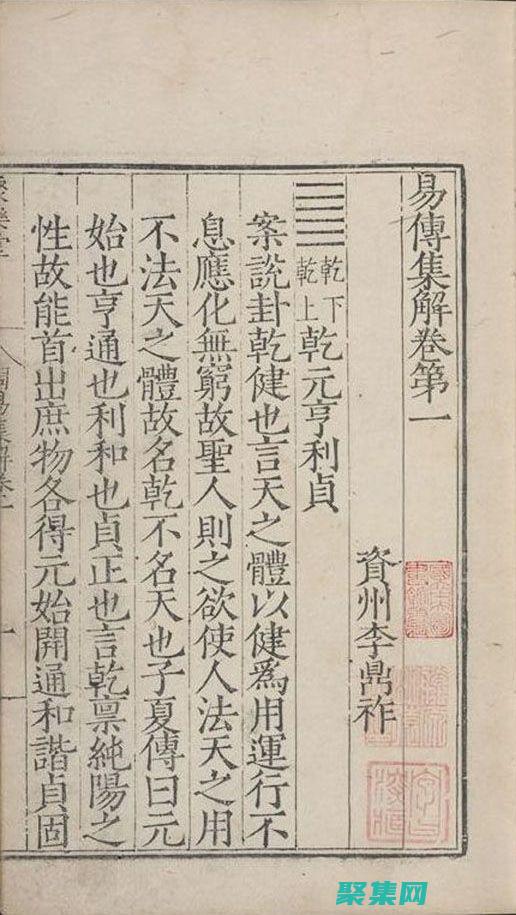 易傳集解卷第一
資州李鼎祚
䷀ 乾下乾上 乾元亨利貞
案說卦乾健也言天之體以健爲用運行不
息應化無窮故聖人則之欲使人法天之用
不法天之體故名乾不名天也子夏傳曰元
始也亨通也利和也貞正也言乾禀純陽之
性故能首出庶物各得元始開通和諧貞固
聚集网